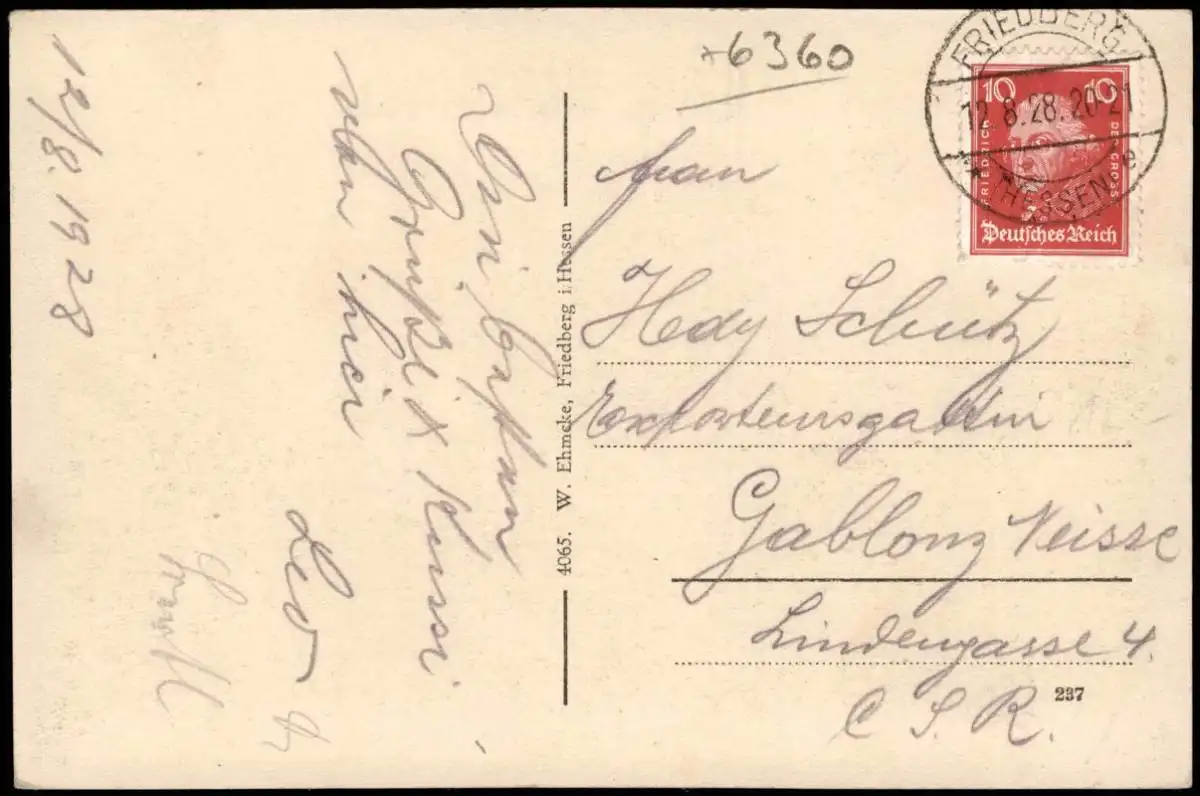 12/8.1928
Grüße & Kussi
hier
Leo
*6360
FRIEDBERG
12.8.28.20-21
* (HESSEN) e
10 10
FRIEDRICH DER GROSSE
Deutsches Reich
4065. W. Ehmcke, Friedberg i. Hessen
Frau
Hedy Schütz
Exporteursgattin
Gablonz Neisse
Lindengasse 4.
C S. R.
237